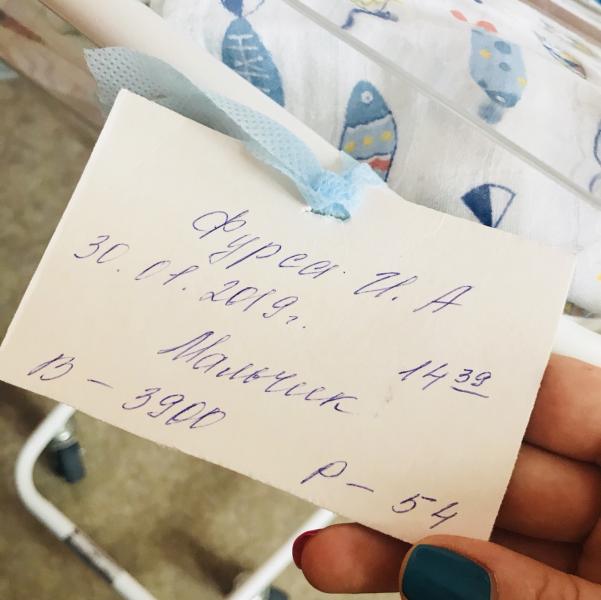 Фурса И. А
30.01.2019г.
Мальчик 14 39
В - 3900
Р - 54